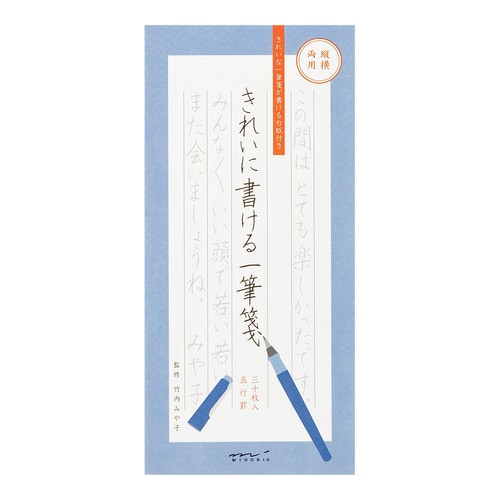 縦横
両用
きれいな一筆箋が書ける台紙付き
この間は とても 楽しかったです。
きれいに書ける一筆箋
みんなく、いい顔で若い若
また 会いましょうね。 みや子
三十枚入
五行罫
監修 竹内みや子
MIDORI